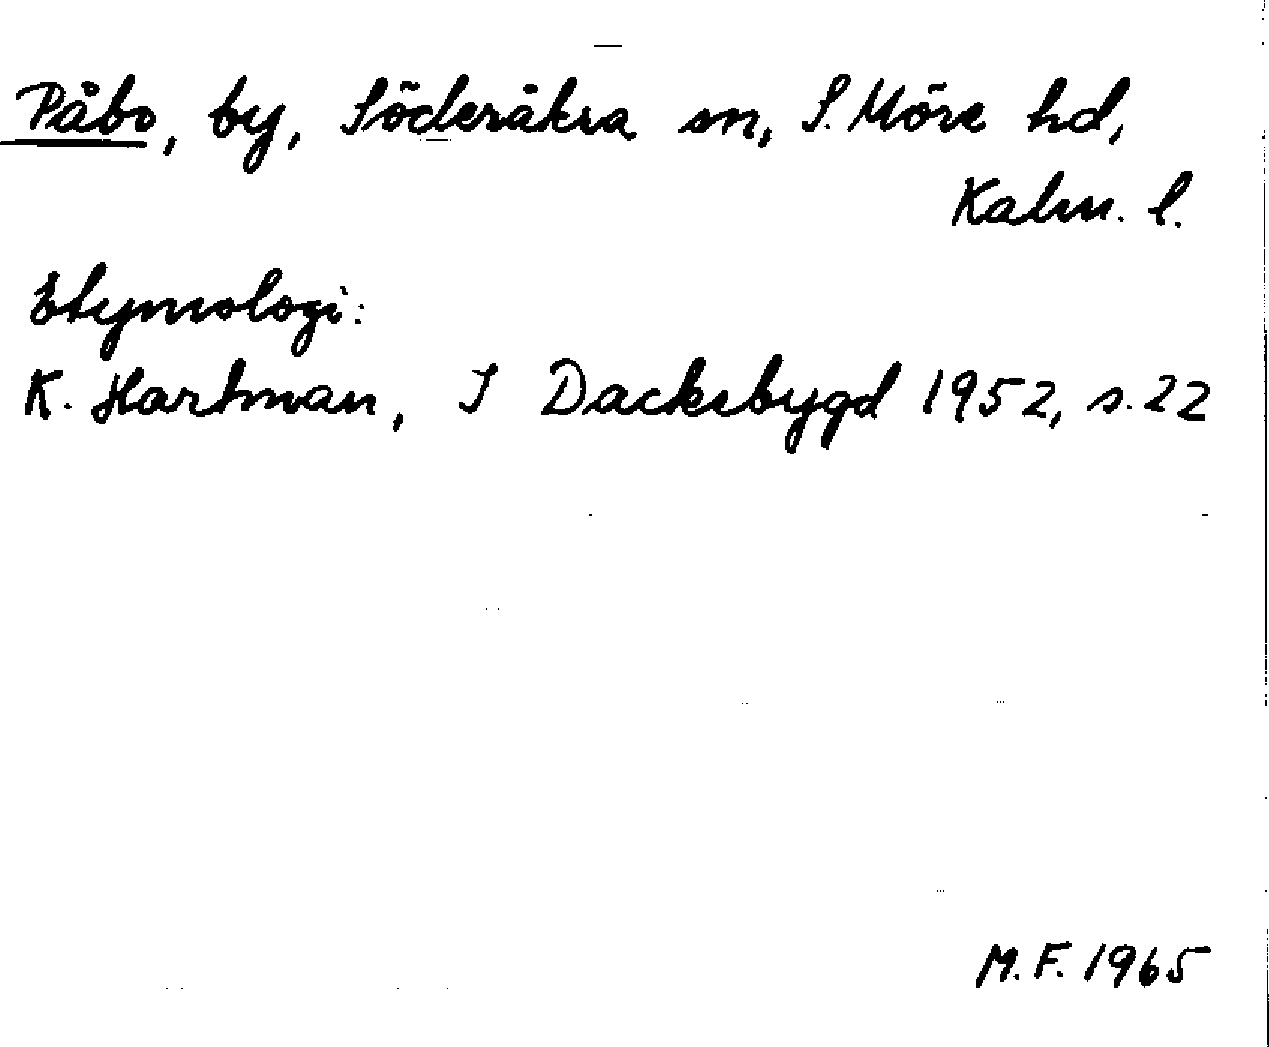 Påbo, by, Söderåkra sn, S. Möre hd,
Kalm. l.
Etymologi:
K. Hartman, I Dackebygd 1952, s. 22
M.F. 1965